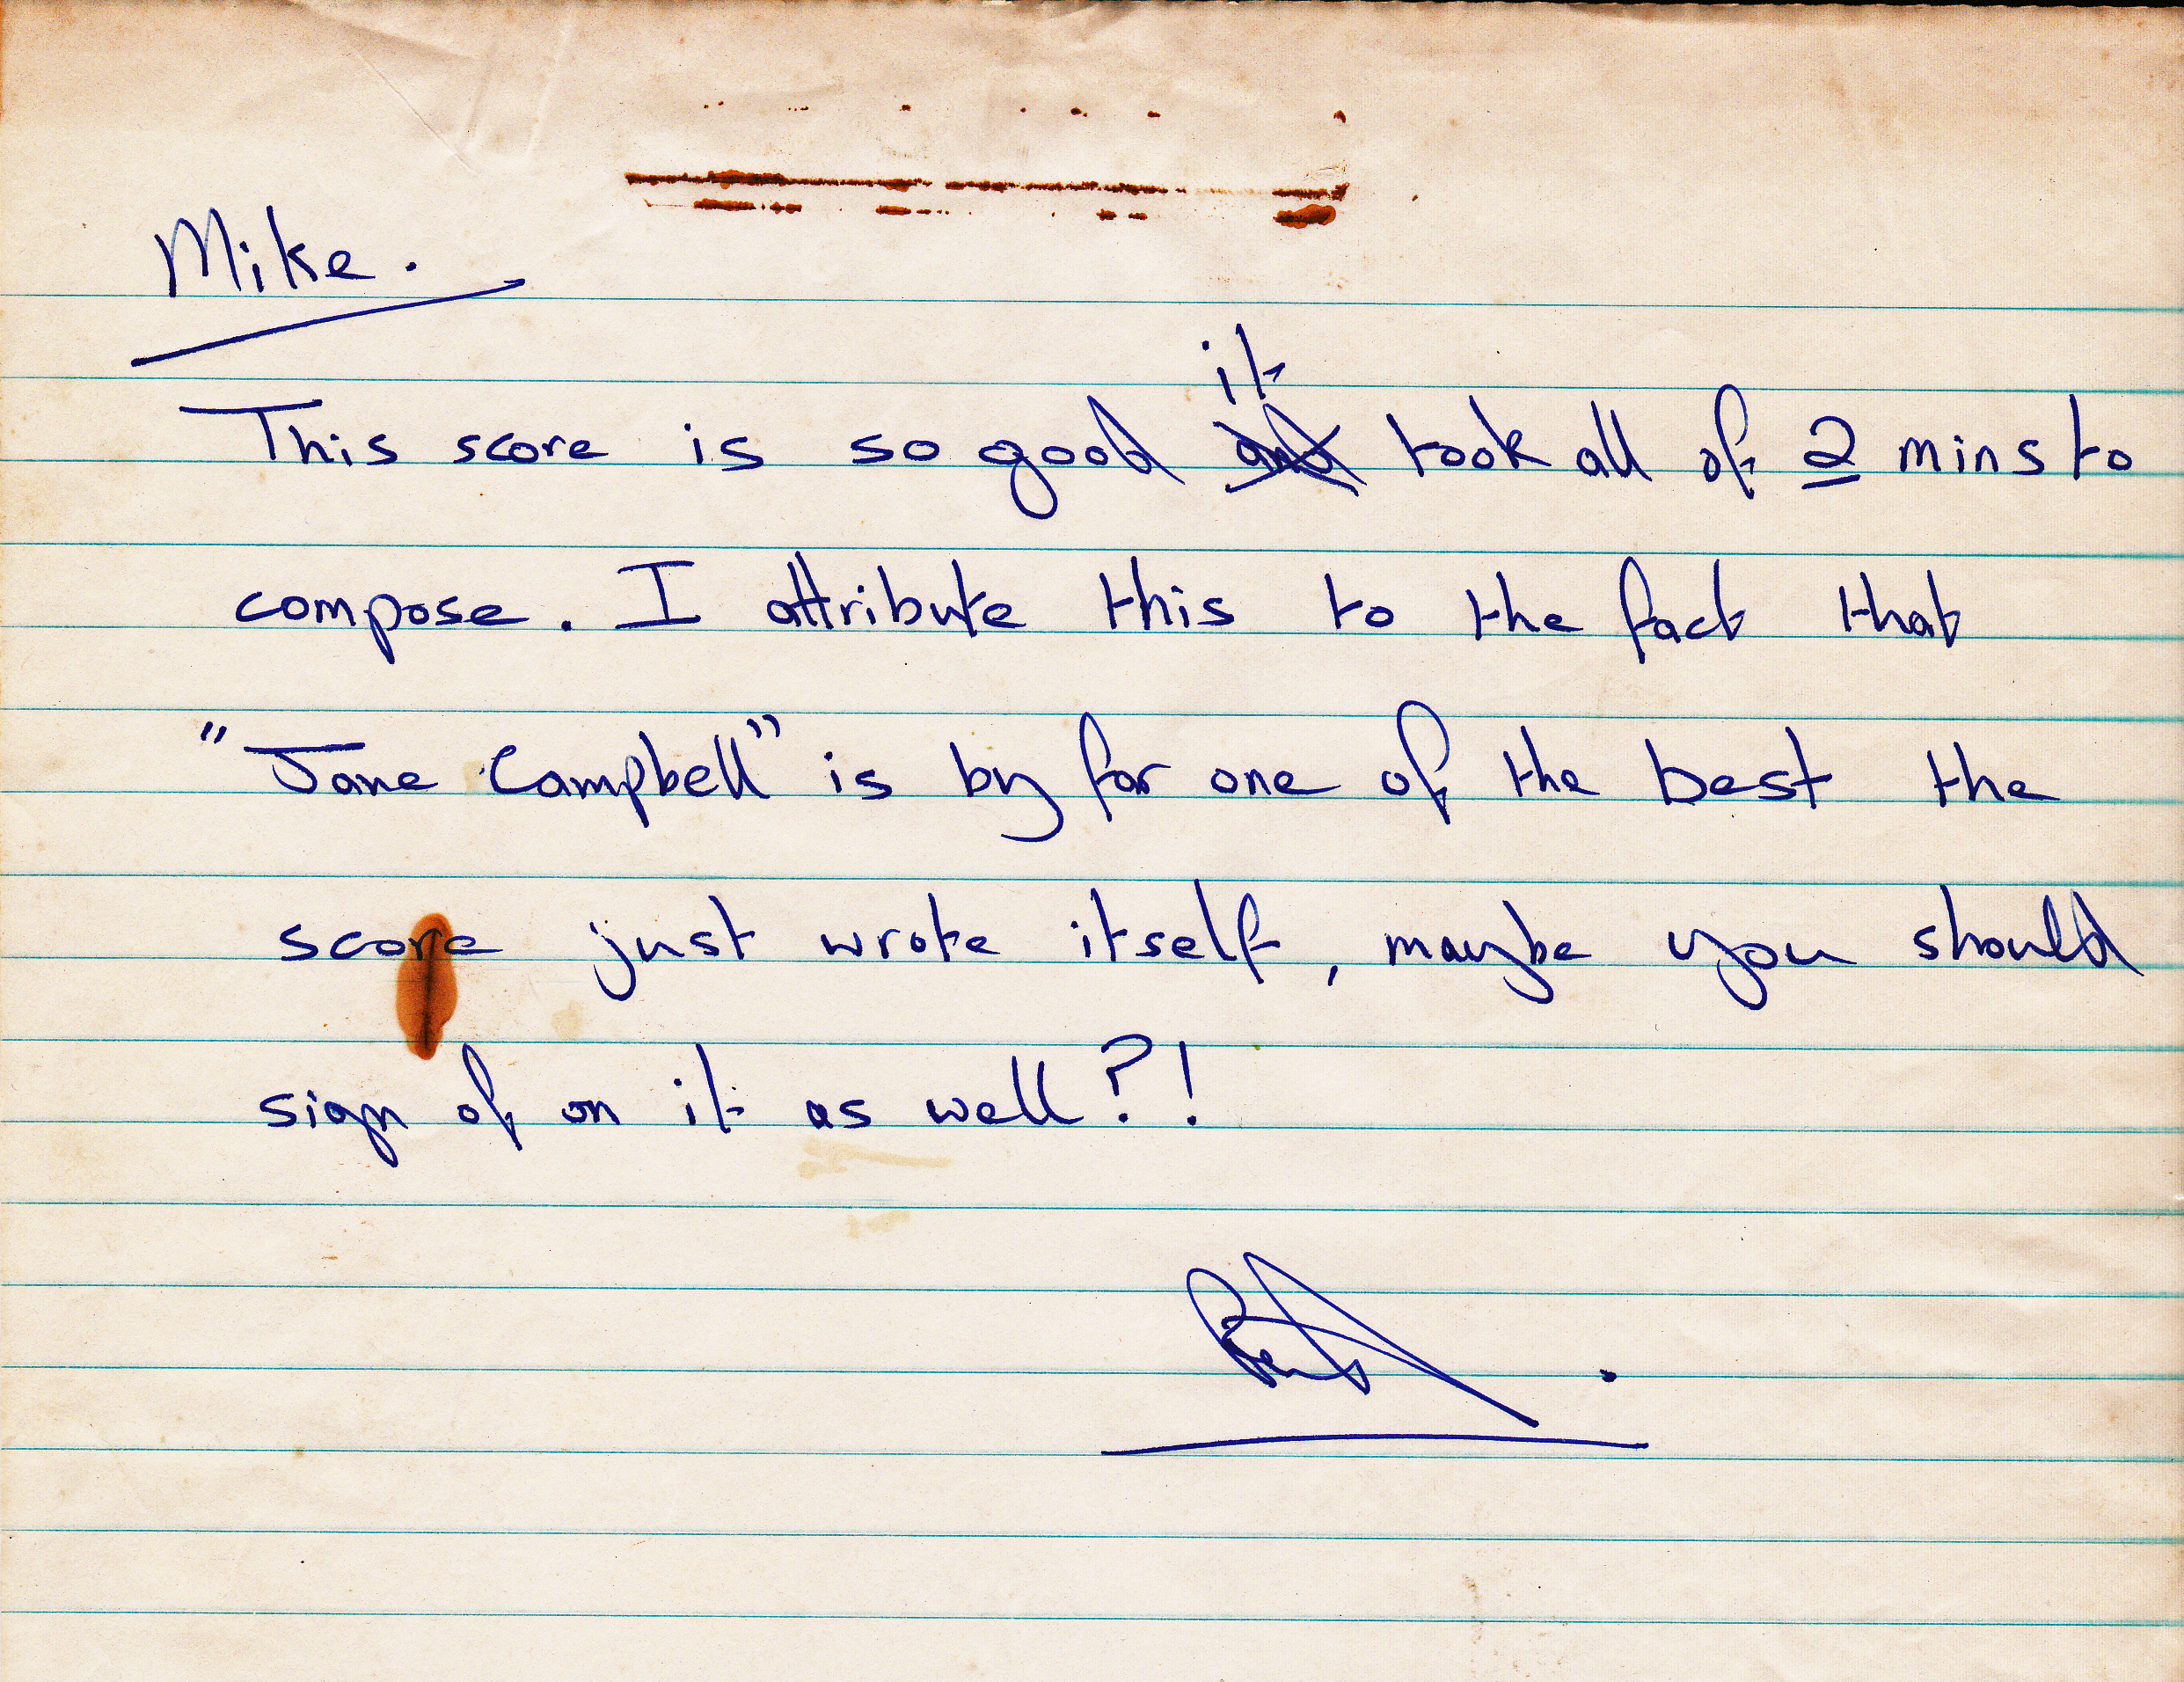 Mike.
it
This score is so good and took all of 2 mins to
compose. I attribute this to the fact that
"Jane Campbell" is by far one of the best the
score just wrote itself, maybe you should
sign of on it as well?!